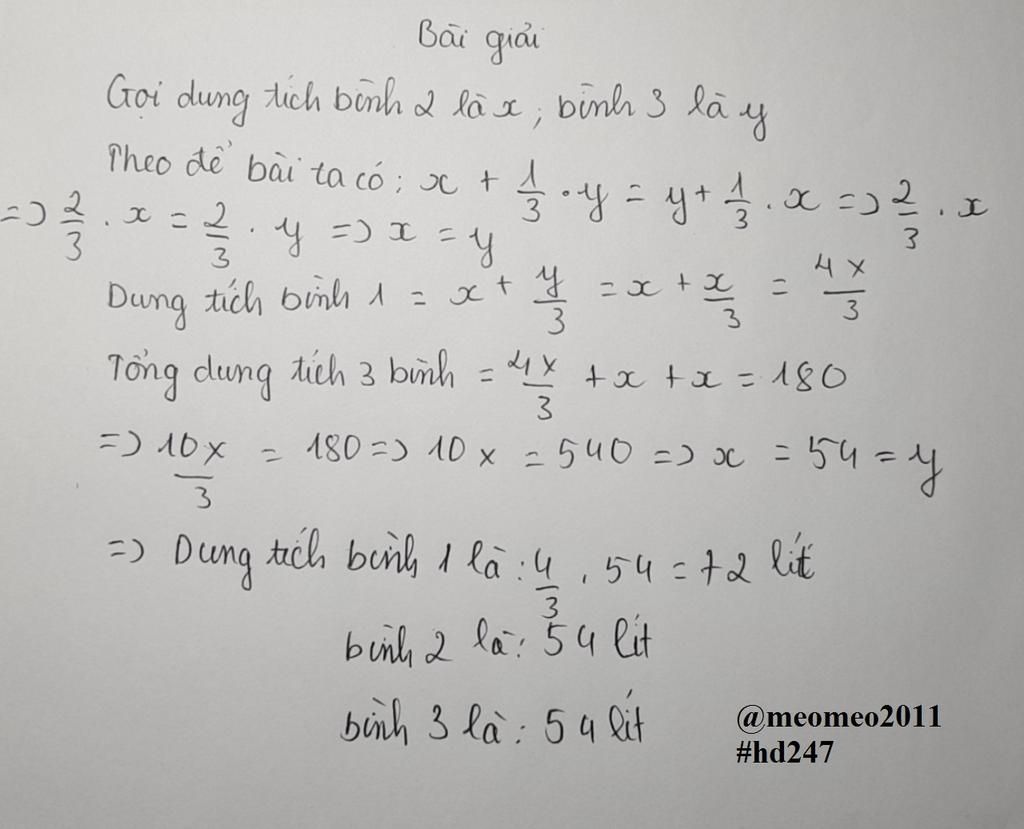 Bài giải
Gọi dung tích bình 2 là x; bình 3 là y
Theo đề bài ta có: x + 1/3 . y = y + 1/3 . x => 2/3 . x
=> 2/3 . x = 2/3 . y => x = y
Dung tích bình 1 = x + y/3 = x + x/3 = 4x/3
Tổng dung tích 3 bình = 4x/3 + x + x = 180
=> 10x/3 = 180 => 10x = 540 => x = 54 = y
=> Dung tích bình 1 là: 4/3 . 54 = 72 lít
bình 2 là: 54 lít
bình 3 là: 54 lít
@meomeo2011
#hd247